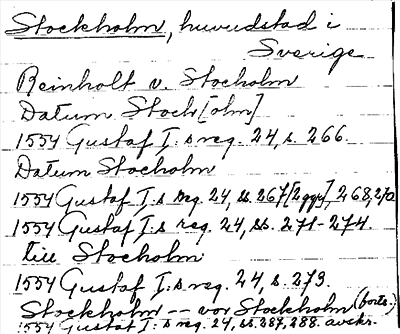 Stockholm, huvudstad i
Sverige
Reinholt v. Stocholm
Datum Stock[olm]
1554 Gustaf I:s reg. 24, s. 266.
Datum Stocholm
1554 Gustaf I:s reg. 24, ss. 267[2ggr], 268, 270
1554 Gustaf I:s reg. 24, ss. 271-274.
till Stocholm
1554 Gustaf I:s reg. 24, s. 279.
Stockholm -- vor Stockholm (forts.)
1554 Gustaf I:s reg. 24, ss. 287, 288. avskr.